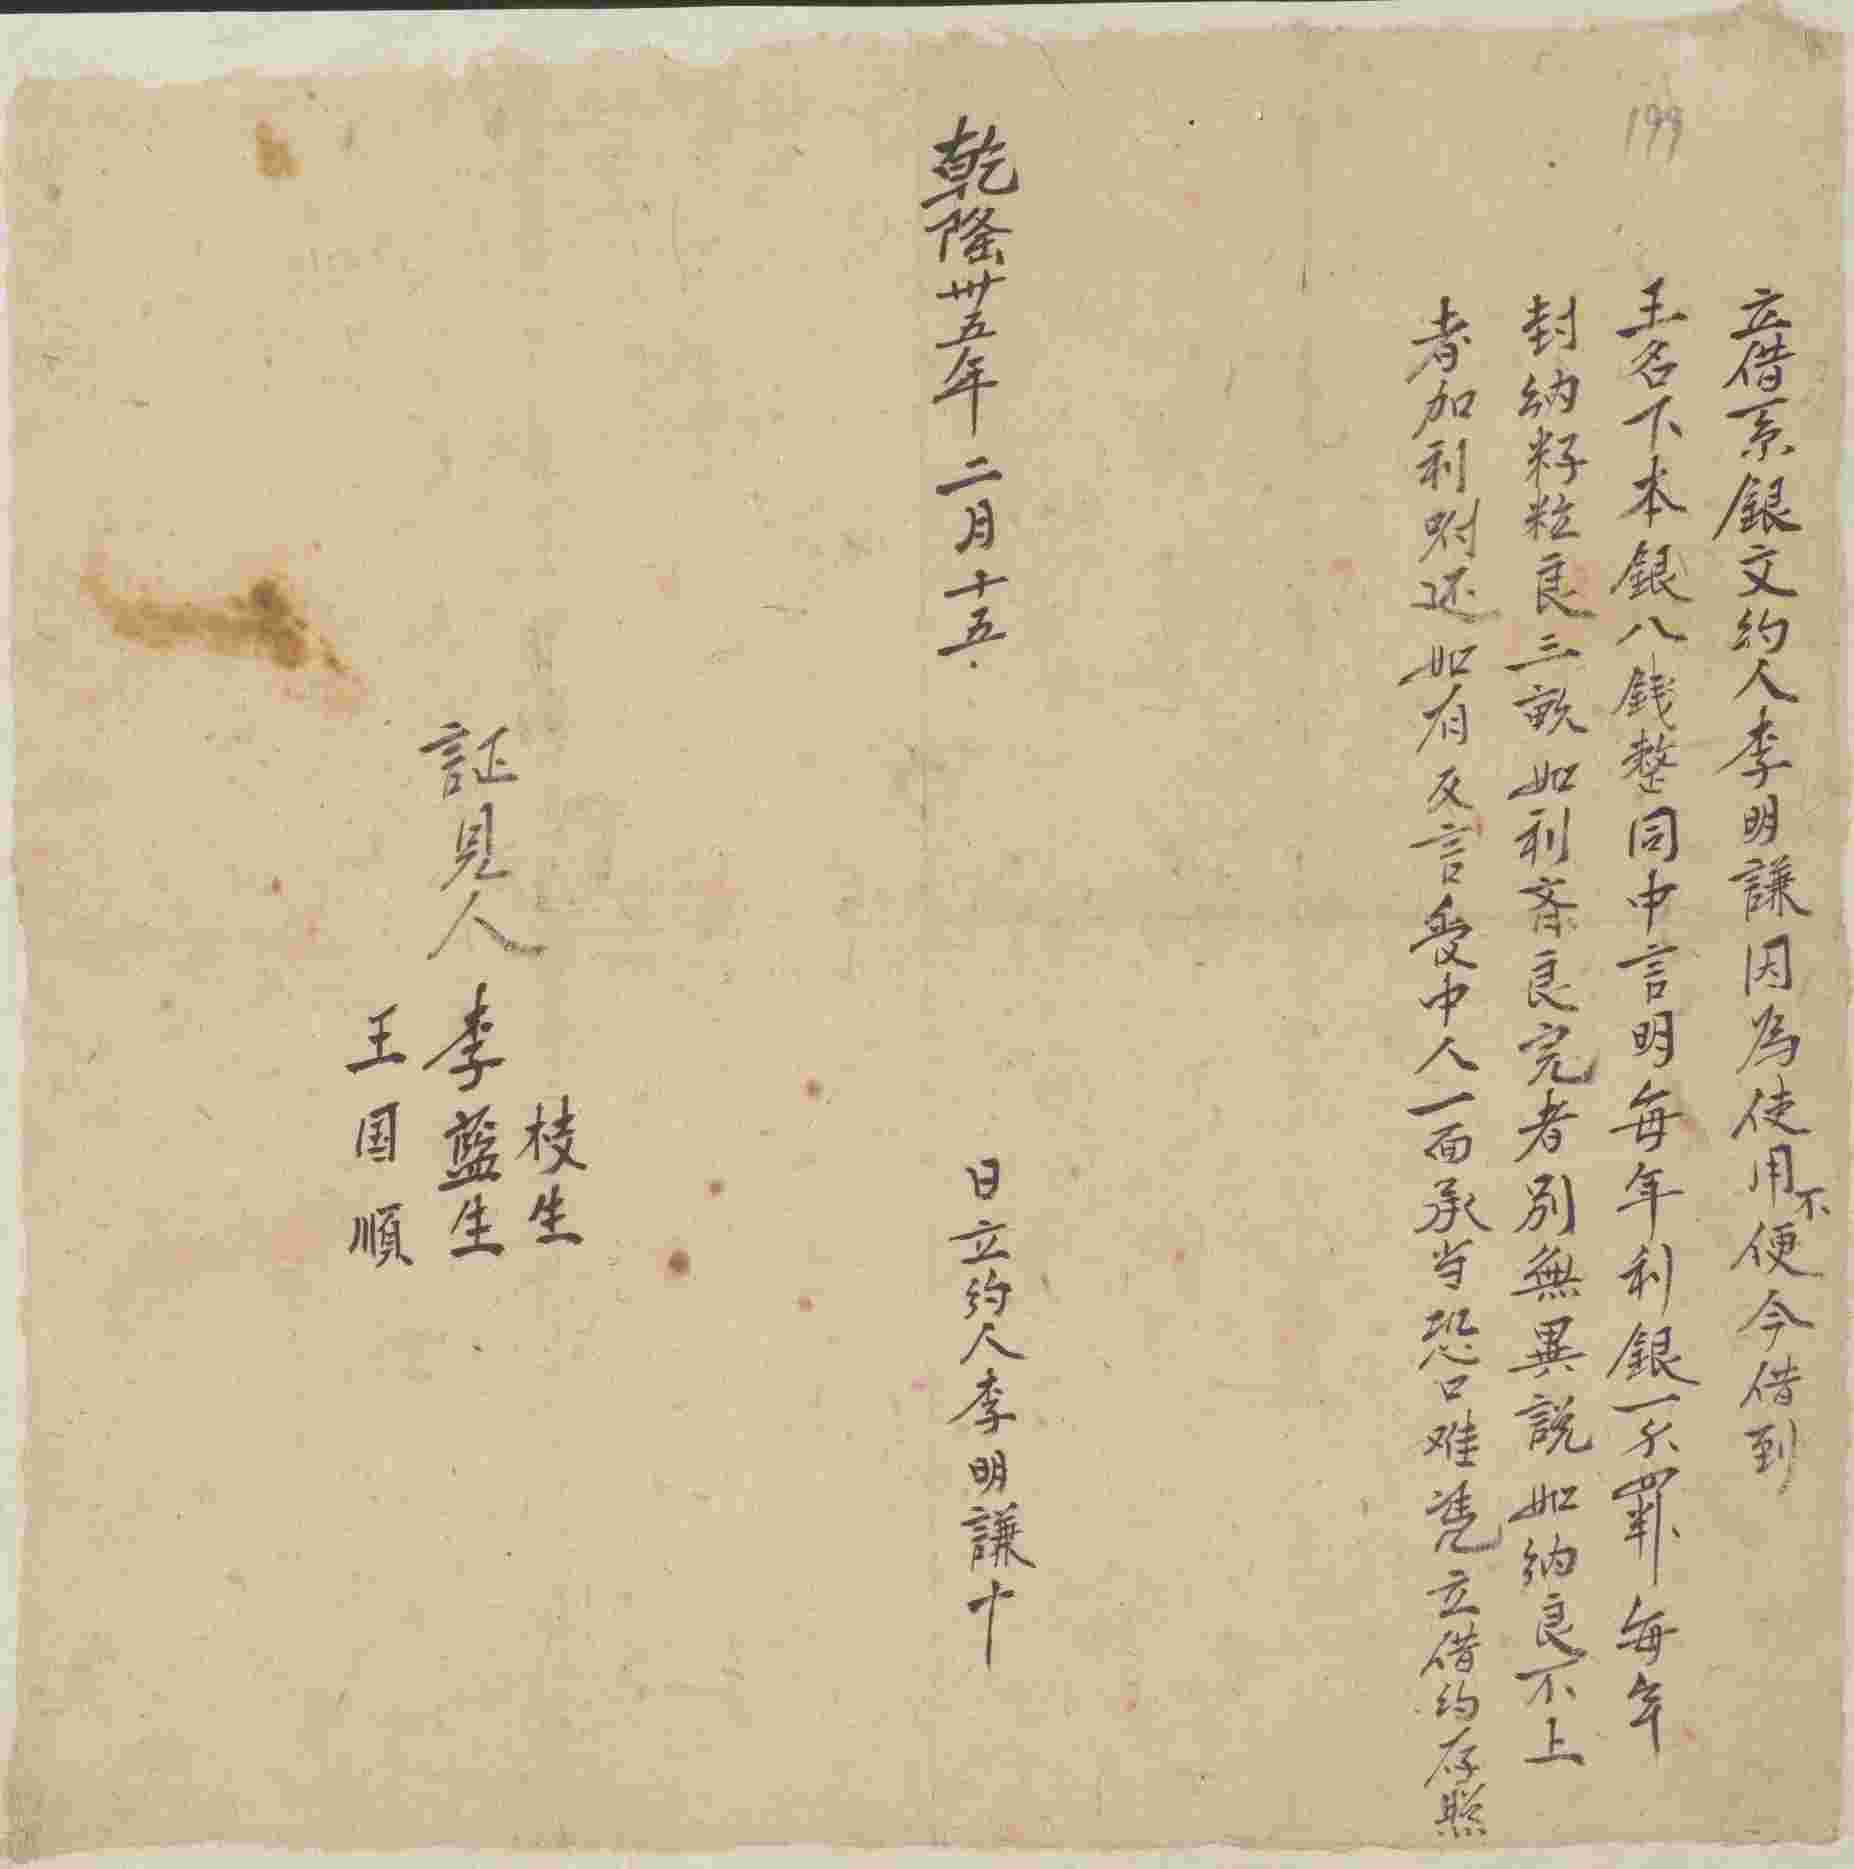 199
立借系銀文約人李明謙因為使用不便今借到
王名下本銀八錢整同中言明每年利銀一分 每年
封納籽粒良三畝如利 良完者別無異説如納良不上
者加利 还如有反言受中人一面承当恐口难凭立借約存照
乾隆卅五年二月十五 日立約人李明謙十
証見人
枝生
李藍生
王国順